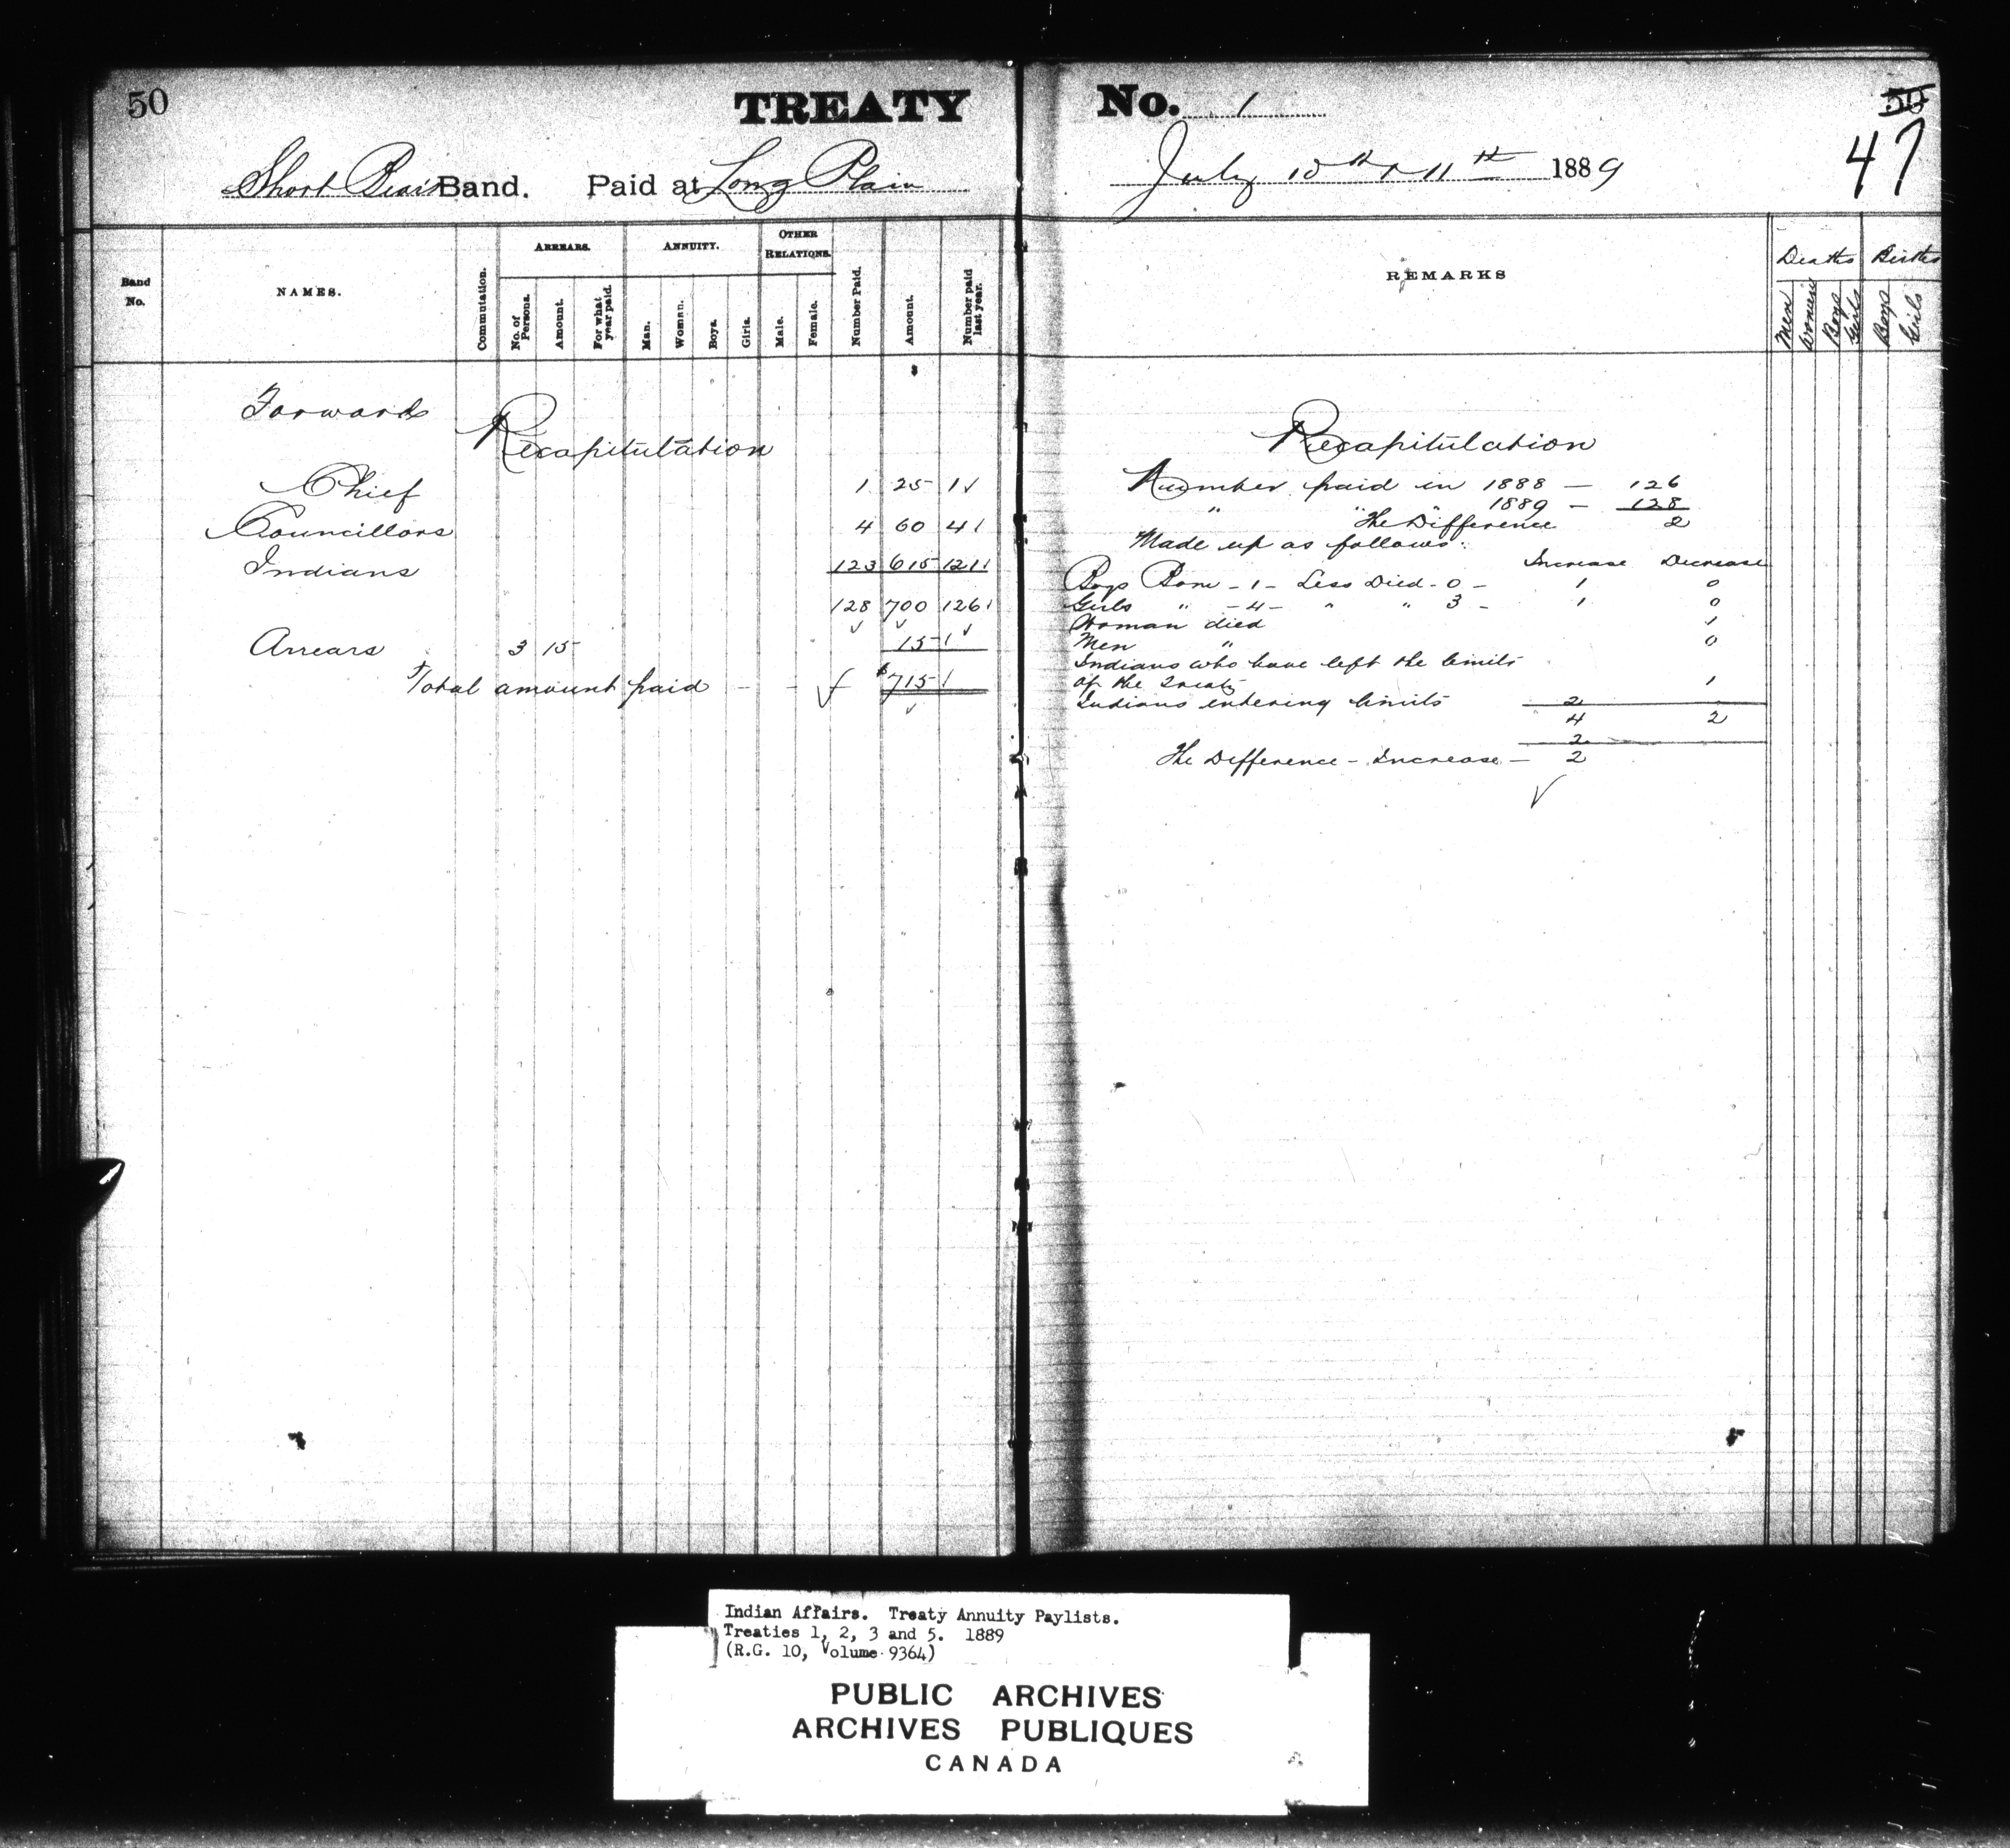 50
TREATY No. 1
50
47
Short Bear's Band. Paid at Long Plain July 10th & 11th 1889
Band No.
NAMES.
Commutation.
ARREARS.
No. of Persons.
Amount.
For what year paid.
ANNUITY.
Man.
Woman.
Boys.
Girls.
OTHER RELATIONS.
Male.
Female.
Number Paid.
Amount.
Number paid last year.
REMARKS
Deaths Births
Men
Women
Boys
Girls
Boys
Girls
Forward
Recapitulation
Chief 1 25 1
Councillors 4 60 4
Indians 123 615 121
128 700 126
Arrears 3 15 15
Total amount paid $715
Recapitulation
Number paid in 1888 — 126
" " " 1889 — 128
The Difference 2
Made up as follows:
Increase Decrease
Boys Born - 1 - Less Died - 0 - 1 0
Girls " - 4 - " " 3 - 1 0
Woman died 1
Men " 0
Indians who have left the limits
of the Treaty 1
Indians entering limits 2
4 2
2
The Difference - Increase - 2
Indian Affairs. Treaty Annuity Paylists.
Treaties 1, 2, 3 and 5. 1889
(R.G. 10, Volume 9364)
PUBLIC ARCHIVES
ARCHIVES PUBLIQUES
CANADA